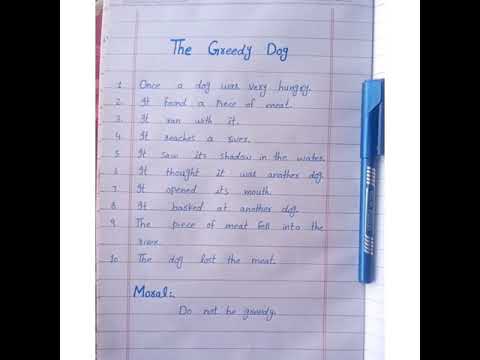 The Greedy Dog
1 Once a dog was very hungry.
2. It found a piece of meat.
3. It ran with it.
4 It reaches a river.
5 It saw its shadow in the water.
6 It thought it was another dog.
7 It opened its mouth.
8 It barked at another dog.
9 The piece of meat fell into the
river.
10 The dog lost the meat.
Moral:-
Do not be greedy.